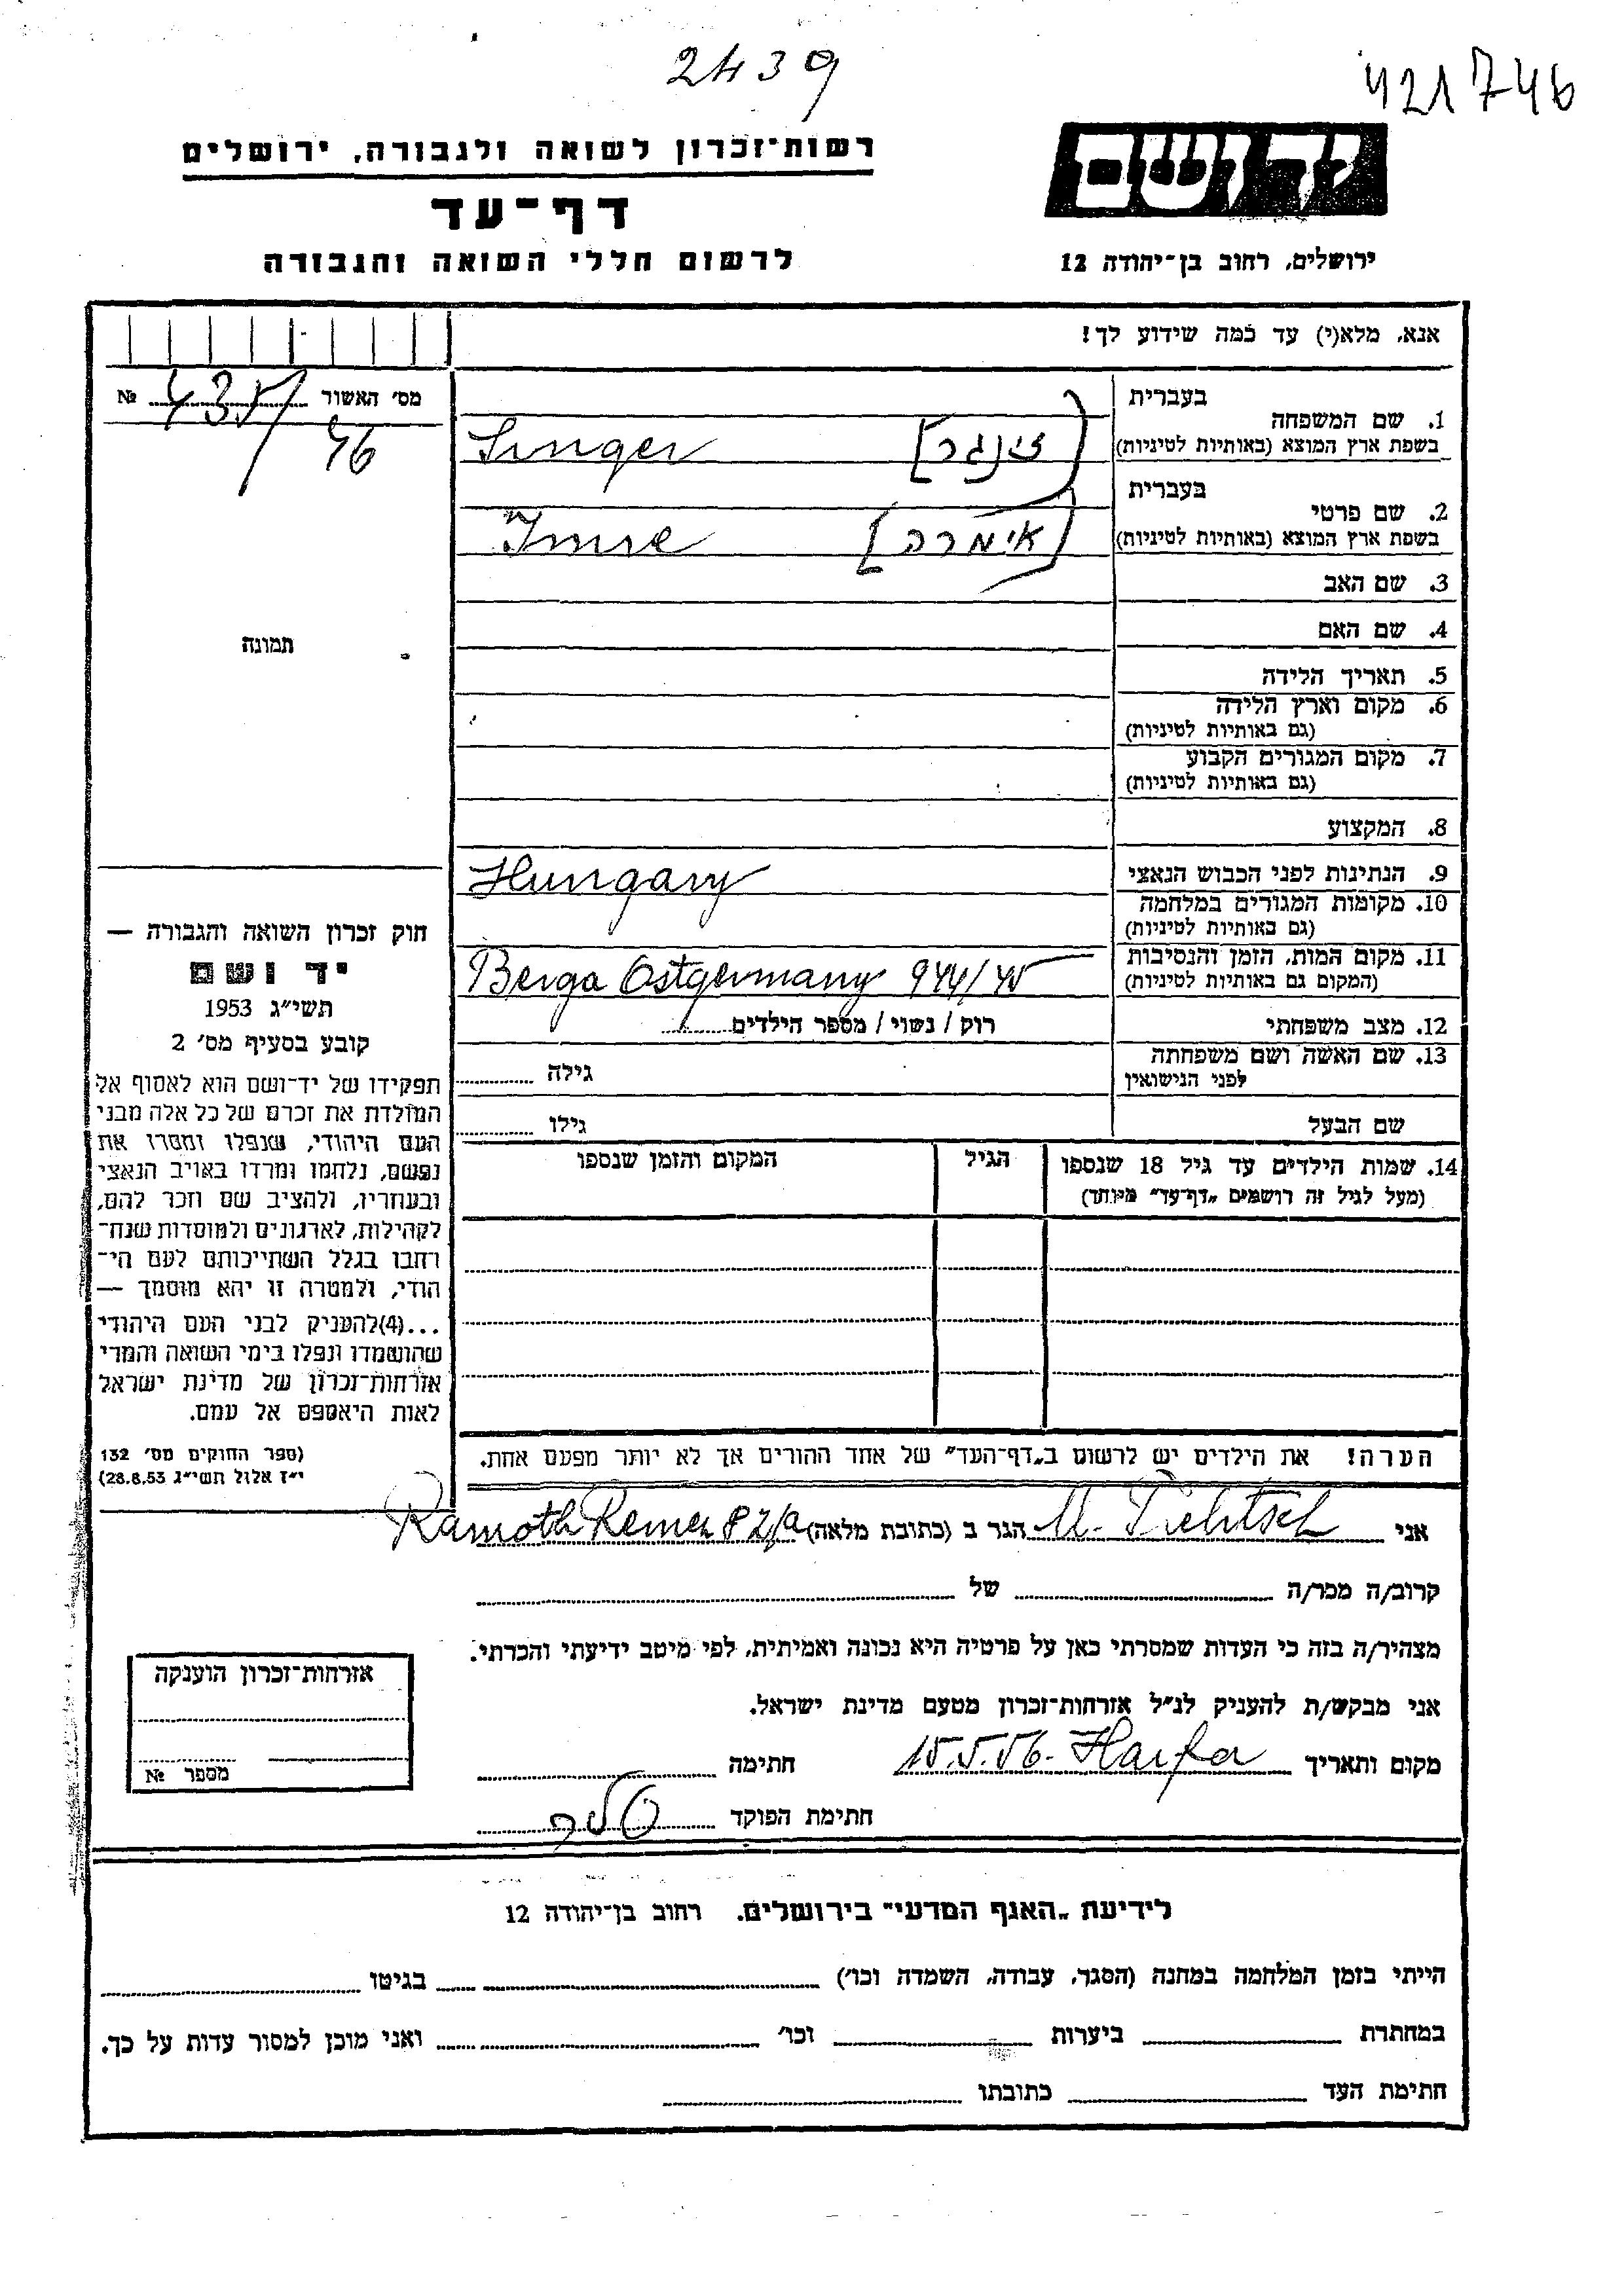 2439
421746
רשות־זכרון לשואה ולגבורה, ירושלים
יד ושם
דף־עד
לרשום חללי השואה והגבורה
ירושלים, רחוב בן־יהודה 12
אנא, מלא(י) עד כמה שידוע לך!
מס׳ האשור №
46
בעברית
1. שם המשפחה
בשפת ארץ המוצא (באותיות לטיניות)
Singer [זינגר]
בעברית
2. שם פרטי
בשפת ארץ המוצא (באותיות לטיניות)
Imre [אימרה]
3. שם האב
4. שם האם
תמונה
5. תאריך הלידה
6. מקום וארץ הלידה
(גם באותיות לטיניות)
7. מקום המגורים הקבוע
(גם באותיות לטיניות)
8. המקצוע
9. הנתינות לפני הכבוש הנאצי Hungary
10. מקומות המגורים במלחמה
(גם באותיות לטיניות)
11. מקום המות, הזמן והנסיבות
(המקום גם באותיות לטיניות)
Berga Ostgermany 944/45
12. מצב משפחתי רוק / נשוי / מספר הילדים
13. שם האשה ושם משפחתה
לפני הנישואין
גילה
שם הבעל גילו
14. שמות הילדים עד גיל 18 שנספו
(מעל לגיל זה רושמים „דף־עד״ מיוחד)
הגיל
המקום והזמן שנספו
חוק זכרון השואה והגבורה —
יד ושם
תשי״ג 1953
קובע בסעיף מס׳ 2
תפקידו של יד־ושם הוא לאסוף אל
המולדת את זכרם של כל אלה מבני
העם היהודי, שנפלו ומסרו את
נפשם, נלחמו ומרדו באויב הנאצי
ובעוזריו, ולהציב שם וזכר להם,
לקהילות, לארגונים ולמוסדות שנח־
רבו בגלל השתייכותם לעם הי־
הודי, ולמטרה זו יהא מוסמך —
...(4)להעניק לבני העם היהודי
שהושמדו ונפלו בימי השואה והמרי
אזרחות־זכרון של מדינת ישראל
לאות היאספם אל עמם.
(ספר החוקים מס׳ 132
י״ז אלול תשי״ג 28.8.53)
הערה! את הילדים יש לרשום ב„דף־העד״ של אחד ההורים אך לא יותר מפעם אחת.
אני M. הגר ב (כתובת מלאה) Ramoth Remez 82/a
קרוב/ה מכר/ה של
מצהיר/ה בזה כי העדות שמסרתי כאן על פרטיה היא נכונה ואמיתית, לפי מיטב ידיעתי והכרתי.
אני מבקש/ת להעניק לנ״ל אזרחות־זכרון מטעם מדינת ישראל.
מקום ותאריך 15.5.56. Haifa חתימה
חתימת הפוקד
אזרחות־זכרון הוענקה
מספר №
לידיעת „האגף המדעי״ בירושלים, רחוב בן־יהודה 12
הייתי בזמן המלחמה במחנה (הסגר, עבודה, השמדה וכו׳) בגיטו
במחתרת ביערות וכו׳ ואני מוכן למסור עדות על כך.
חתימת העד כתובתו